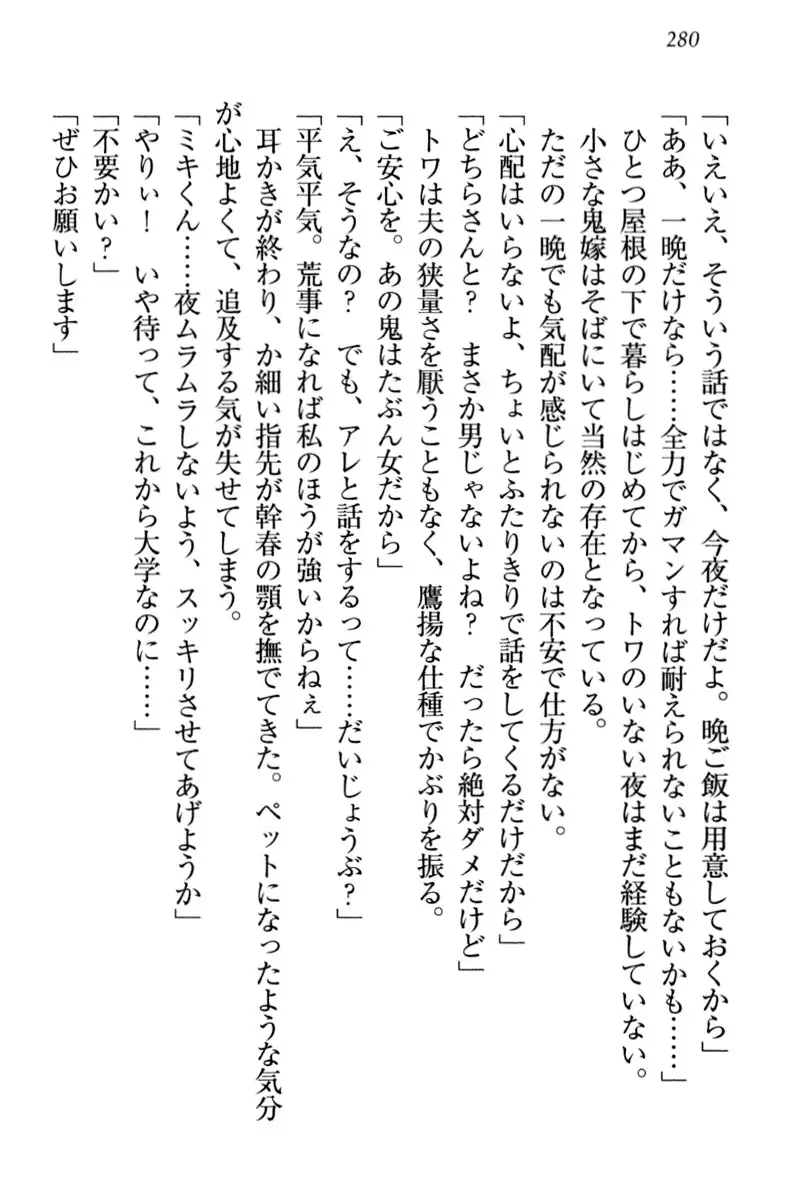 280
「いえいえ、そういう話ではなく、今夜だけだよ。晩ご飯は用意しておくから」
「ああ、一晩だけなら……全力でガマンすれば耐えられないこともないかも……」
ひとつ屋根の下で暮らしはじめてから、トワのいない夜はまだ経験していない。
小さな鬼嫁はそばにいて当然の存在となっている。
ただの一晩でも気配が感じられないのは不安で仕方がない。
「心配はいらないよ、ちょいとふたりきりで話をしてくるだけだから」
「どちらさんと？　まさか男じゃないよね？　だったら絶対ダメだけど」
トワは夫の狭量さを厭うこともなく、鷹揚な仕種でかぶりを振る。
「ご安心を。あの鬼はたぶん女だから」
「え、そうなの？　でも、アレと話をするって……だいじょうぶ？」
「平気平気。荒事になれば私のほうが強いからねぇ」
耳かきが終わり、か細い指先が幹春の顎を撫でてきた。ペットになったような気分
が心地よくて、追及する気が失せてしまう。
「ミキくん……夜ムラムラしないよう、スッキリさせてあげようか」
「やりぃ！　いや待って、これから大学なのに……」
「不要かい？」
「ぜひお願いします」